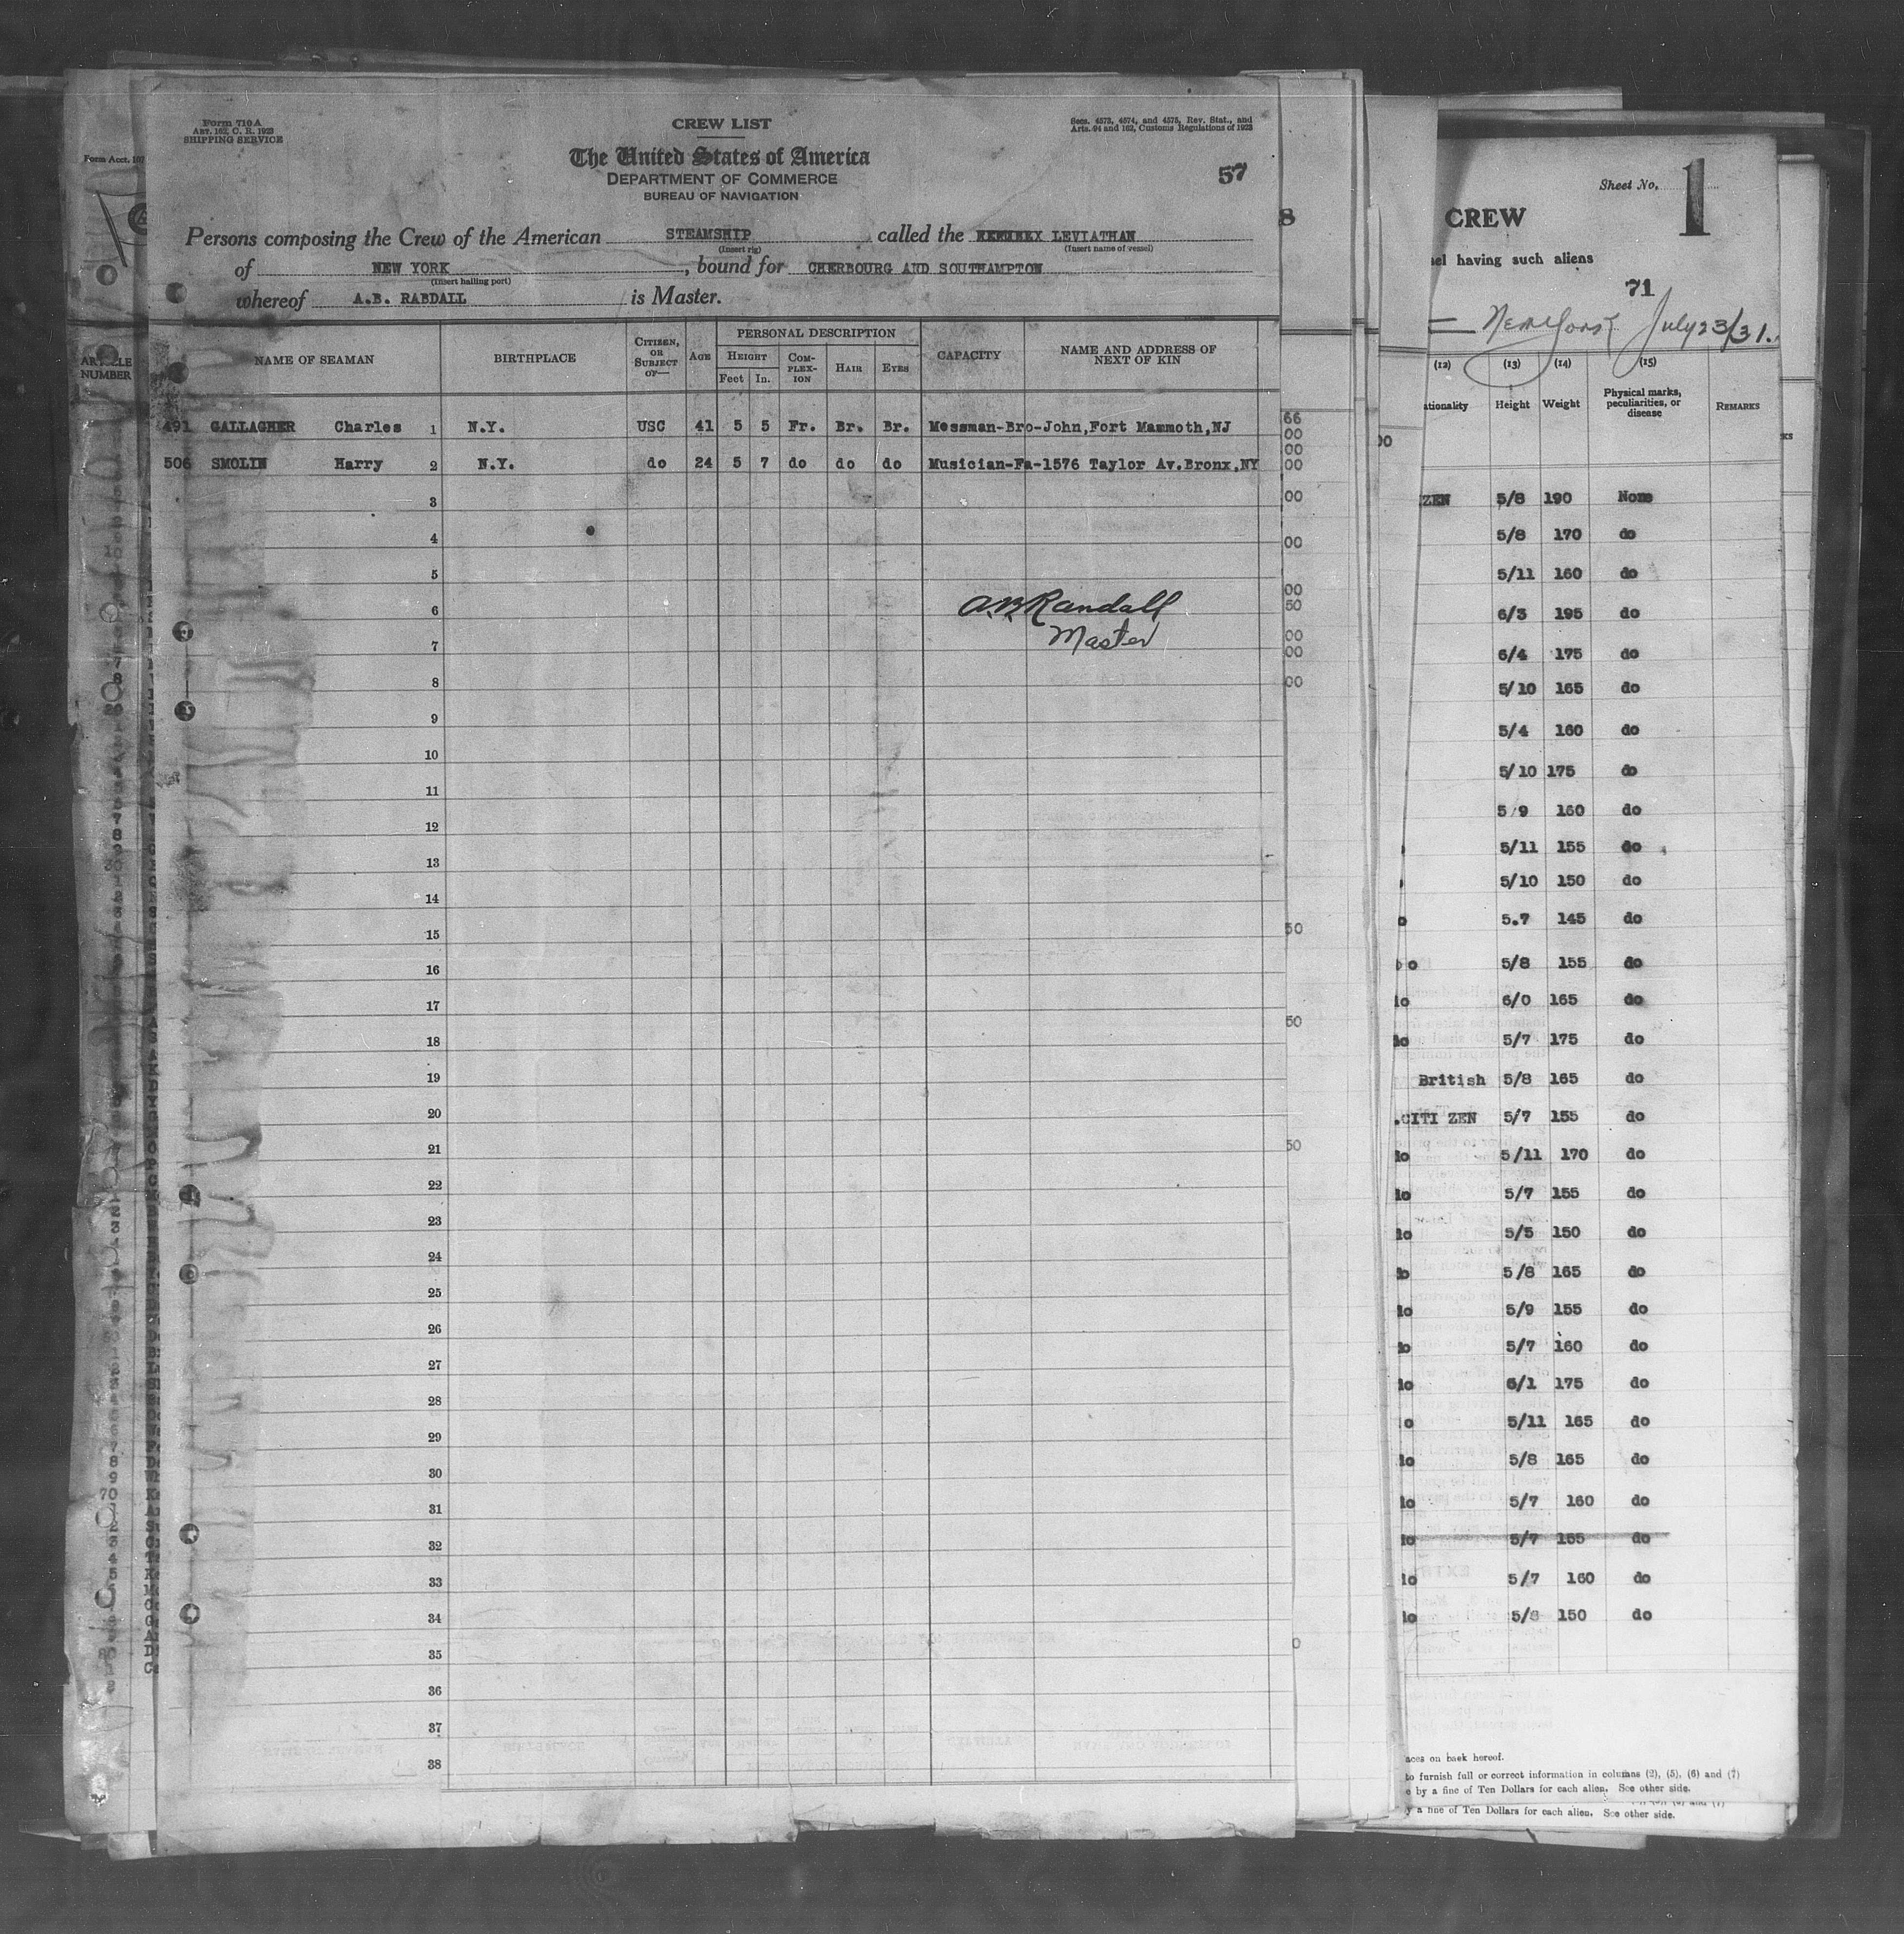 Form 710 A
ART. 162, C. R. 1923
SHIPPING SERVICE
CREW LIST
The United States of America
DEPARTMENT OF COMMERCE
BUREAU OF NAVIGATION
Secs. 4573, 4574, and 4575, Rev. Stat., and
Arts. 94 and 162, Customs Regulations of 1923
57
Persons composing the Crew of the American STEAMSHIP called the LEVIATHAN
(Insert rig) (Insert name of vessel)
of NEW YORK, bound for CHERBOURG AND SOUTHAMPTON
(Insert hailing port)
whereof A.B. RABDALL is Master.
NAME OF SEAMAN BIRTHPLACE CITIZEN, OR SUBJECT OF— AGE PERSONAL DESCRIPTION HEIGHT Feet In. COMPLEXION HAIR EYES CAPACITY NAME AND ADDRESS OF NEXT OF KIN
491 GALLAGHER Charles 1 N.Y. USC 41 5 5 Fr. Br. Br. Messman-Bro-John,Fort Mammoth,NJ
506 SMOLIN Harry 2 N.Y. do 24 5 7 do do do Musician-Fa-1576 Taylor Av.Bronx,NY
3
4
5
6
A.B. Randall
Master
7
8
9
10
11
12
13
14
15
16
17
18
19
20
21
22
23
24
25
26
27
28
29
30
31
32
33
34
35
36
37
38
Form Acct. 107
ARTICLE
NUMBER
8
66
00
00
00
00
00
00
50
00
00
00
50
50
50
0
00
Sheet No. 1
CREW
sel having such aliens
71
New York July 23/31.
(12) (13) (14) (15)
ationality Height Weight Physical marks, peculiarities, or disease REMARKS
ZEN 5/8 190 None
5/8 170 do
5/11 160 do
6/3 195 do
6/4 175 do
5/10 165 do
5/4 160 do
5/10 175 do
5 9 160 do
5/11 155 do
5/10 150 do
o 5.7 145 do
o 5/8 155 do
lo 6/0 165 do
do 5/7 175 do
British 5/8 165 do
.CITI ZEN 5/7 155 do
lo 5/11 170 do
lo 5/7 155 do
lo 5/5 150 do
do 5/8 165 do
lo 5/9 155 do
do 5/7 160 do
lo 6/1 175 do
o 5/11 165 do
lo 5/8 165 do
lo 5/7 160 do
lo 5/7 155 do
lo 5/7 160 do
lo 5/8 150 do
aces on back hereof.
to furnish full or correct information in columns (2), (5), (6) and (7)
e by a fine of Ten Dollars for each alien. See other side.
y a fine of Ten Dollars for each alien. See other side.